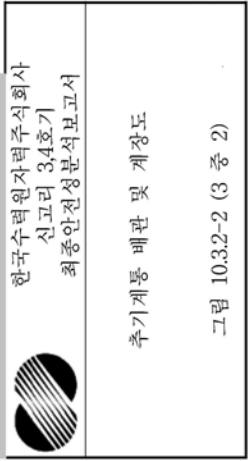 한국수력원자력주식회사
신고리 3,4호기
최종안전성분석보고서
추기계통 배관 및 계장도
그림 10.3.2-2 (3 중 2)